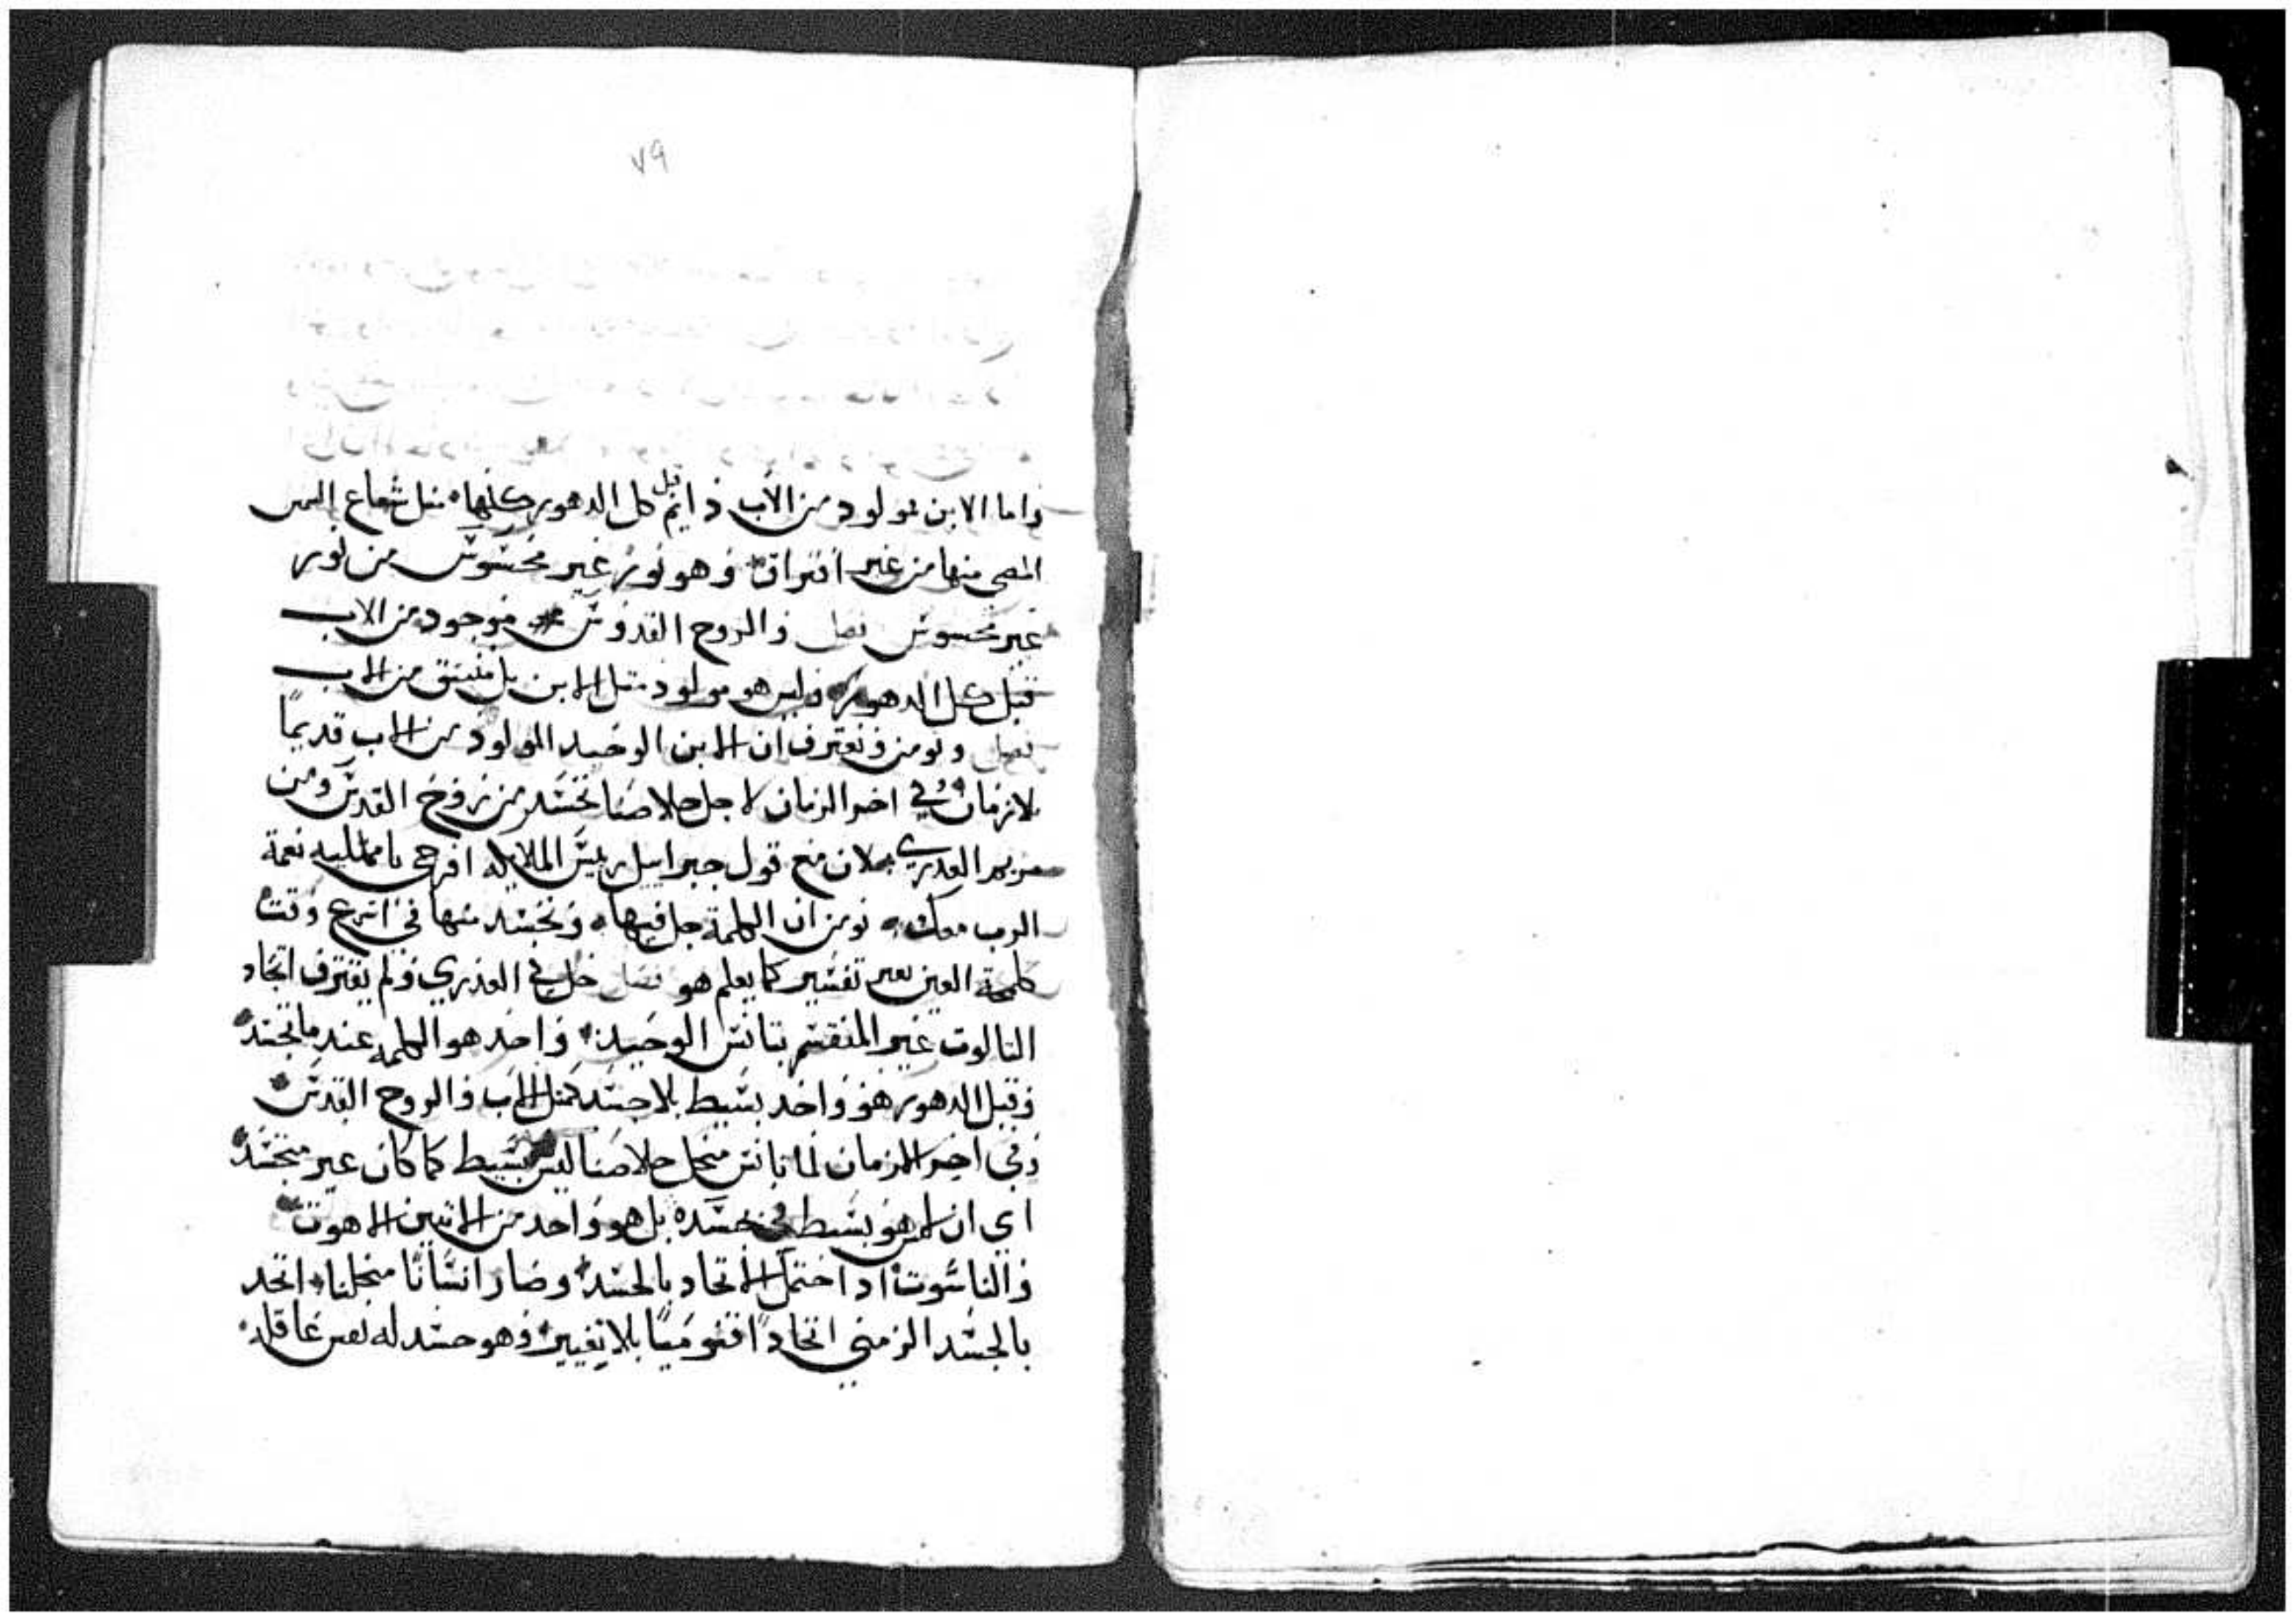 ٧٩
واما الابن مولود من الاب دايم قبل كل الدهور كلها مثل شعاع الشمس
المضى منها من غير افتراق وهو نور غير محسوس من نور
غير محسوس فصل والروح القدوس موجود من الاب
قبل كل الدهور وليس هو مولود مثل الابن بل منبثق من الاب
فصل ونومن ونعترف ان الابن الوحيد المولود من الاب قديمًا
بلا زمان وفي اخر الزمان لاجل خلاصنا تجسد من روح القدس ومن
مريم العدري بلان مع قول جبراييل رييس الملايكه افرحي يا ممتليه نعمة
الرب معك نومن ان الكلمة حل فيها وتجسد منها في اسرع وقت
كلمحة العين بغير تفسير كما يعلم هو فصل حل في العذري ولم يفترق اتحاد
الثالوت غير المنقسم بتانس الوحيد واحد هو الكلمه عندما تجسد
وقبل الدهور هو واحد بسيط بلا جسد كمثل الاب والروح القدس
وفي اخر الزمان لما تانس منجل خلاصنا ليس بسيط كما كان غير متجسد
اي ان ليس هو بسيط في تجسده بل هو واحد من الاتنين الاهوت
والناسوت اد احتمل الاتحاد بالجسد وصار انسانًا منجلنا اتحد
بالجسد الزمني اتحادًا اقنوميًا بلا تغيير وهو جسد له نفس عاقله